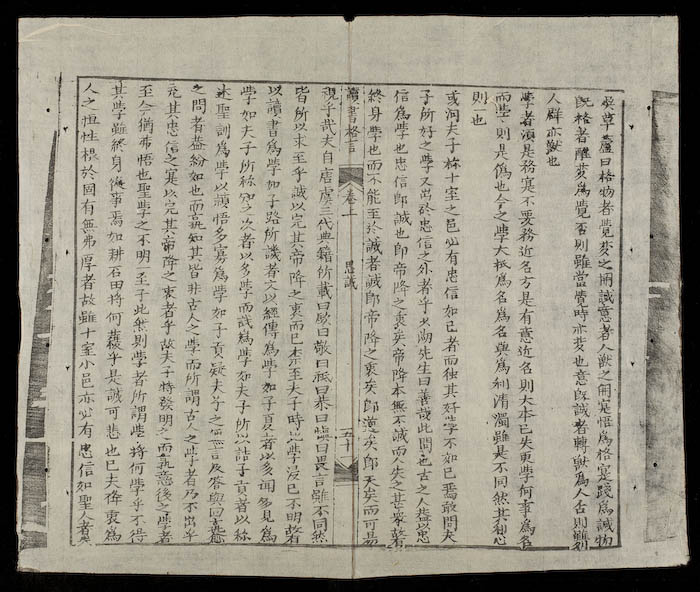 吳草廬曰格物者覺夢之關誠意者人獸之關寔悟爲格寔踐爲誠物
旣格者醒夢爲覺否則雖當覺時亦夢也意旣誠者轉獸爲人否則雖列
人群亦獸也
學者須是務寔不要務近名方是有意近名則大本已失更學何事爲名
而學則是僞也今之學大抵爲名爲名與爲利清濁雖是不同然其利心
則一也
或問夫子称十室之邑必有忠信如己者而独其好学不如己焉敢問夫
子所好之学又出於忠信之外者乎 先生曰善哉此問也古之人蓋以忠
信爲学也忠信即誠也即帝降之衷矣帝降本無不誠而人失之甚衆
終身學也而不能至於誠者誠即帝降之衷矣即 矣即天矣而可易
讀書格言 卷上 思誠 五十
視乎哉夫自唐虞三代典籍所載曰欽曰敬曰祗曰恭曰 曰畏言雖不同然
皆所以求至乎誠以完其帝降之衷而已柰至夫子時此學浸已不明故有
以讀書爲學如子路所譏者文以經傳爲学如子夏者以多聞多見爲
学如夫子所称知之次者以多学而識爲学如夫子所以詰子貢者以称
述聖訓爲学以穎悟多寡爲学如子貢疑夫子之 言及答與回
之問者蓋紛如也而孰知其皆非古人之学而所謂古人之学者乃不出乎
充其忠信之寔以完其帝降之衷者乎故夫子特發明之而孰意後之學者
至今猶弗悟也聖學之不明一至于此然則學者所謂学將何学乎不得
其學雖終身 事焉如耕石田將何穫乎是誠可悲也已夫降衷爲
人之恒性根於固有無弗厚者故雖十室小邑亦必有忠信如聖人者矣